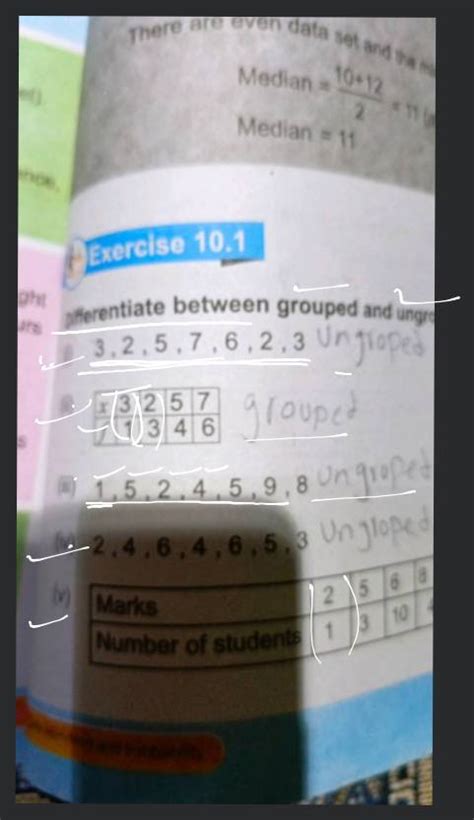 There are even data set and the
Median = 10+12 / 2 = 11
Median = 11
Exercise 10.1
Differentiate between grouped and
3 , 2 , 5 , 7 , 6 , 2 , 3 Ungroped
x 3 2 5 7 grouped
1 3 4 6
(iii) 1 , 5 , 2 , 4 , 5 , 9 , 8 Ungroped
(iv) 2 , 4 , 6 , 4 , 6 , 5 , 3 Ungroped
(v) Marks 2 5 6 8
Number of students 1 3 10